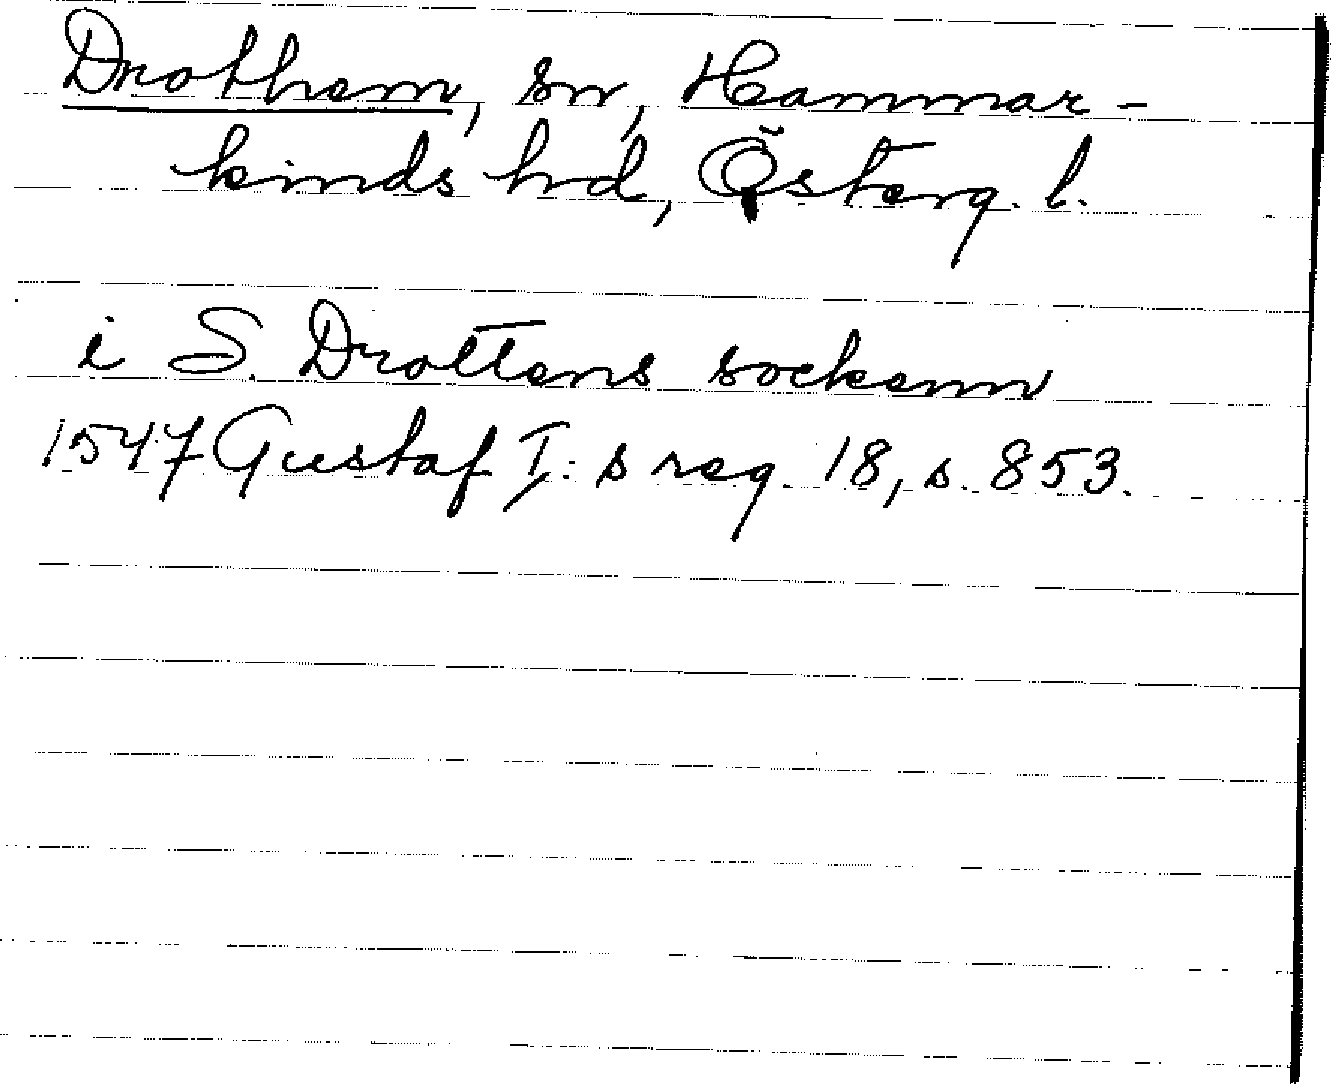 Drothem, sn, Hammar-
kinds hd, Österg. l.
i S. Drottens sockenn
1547 Gustaf I:s reg. 18, s. 853.